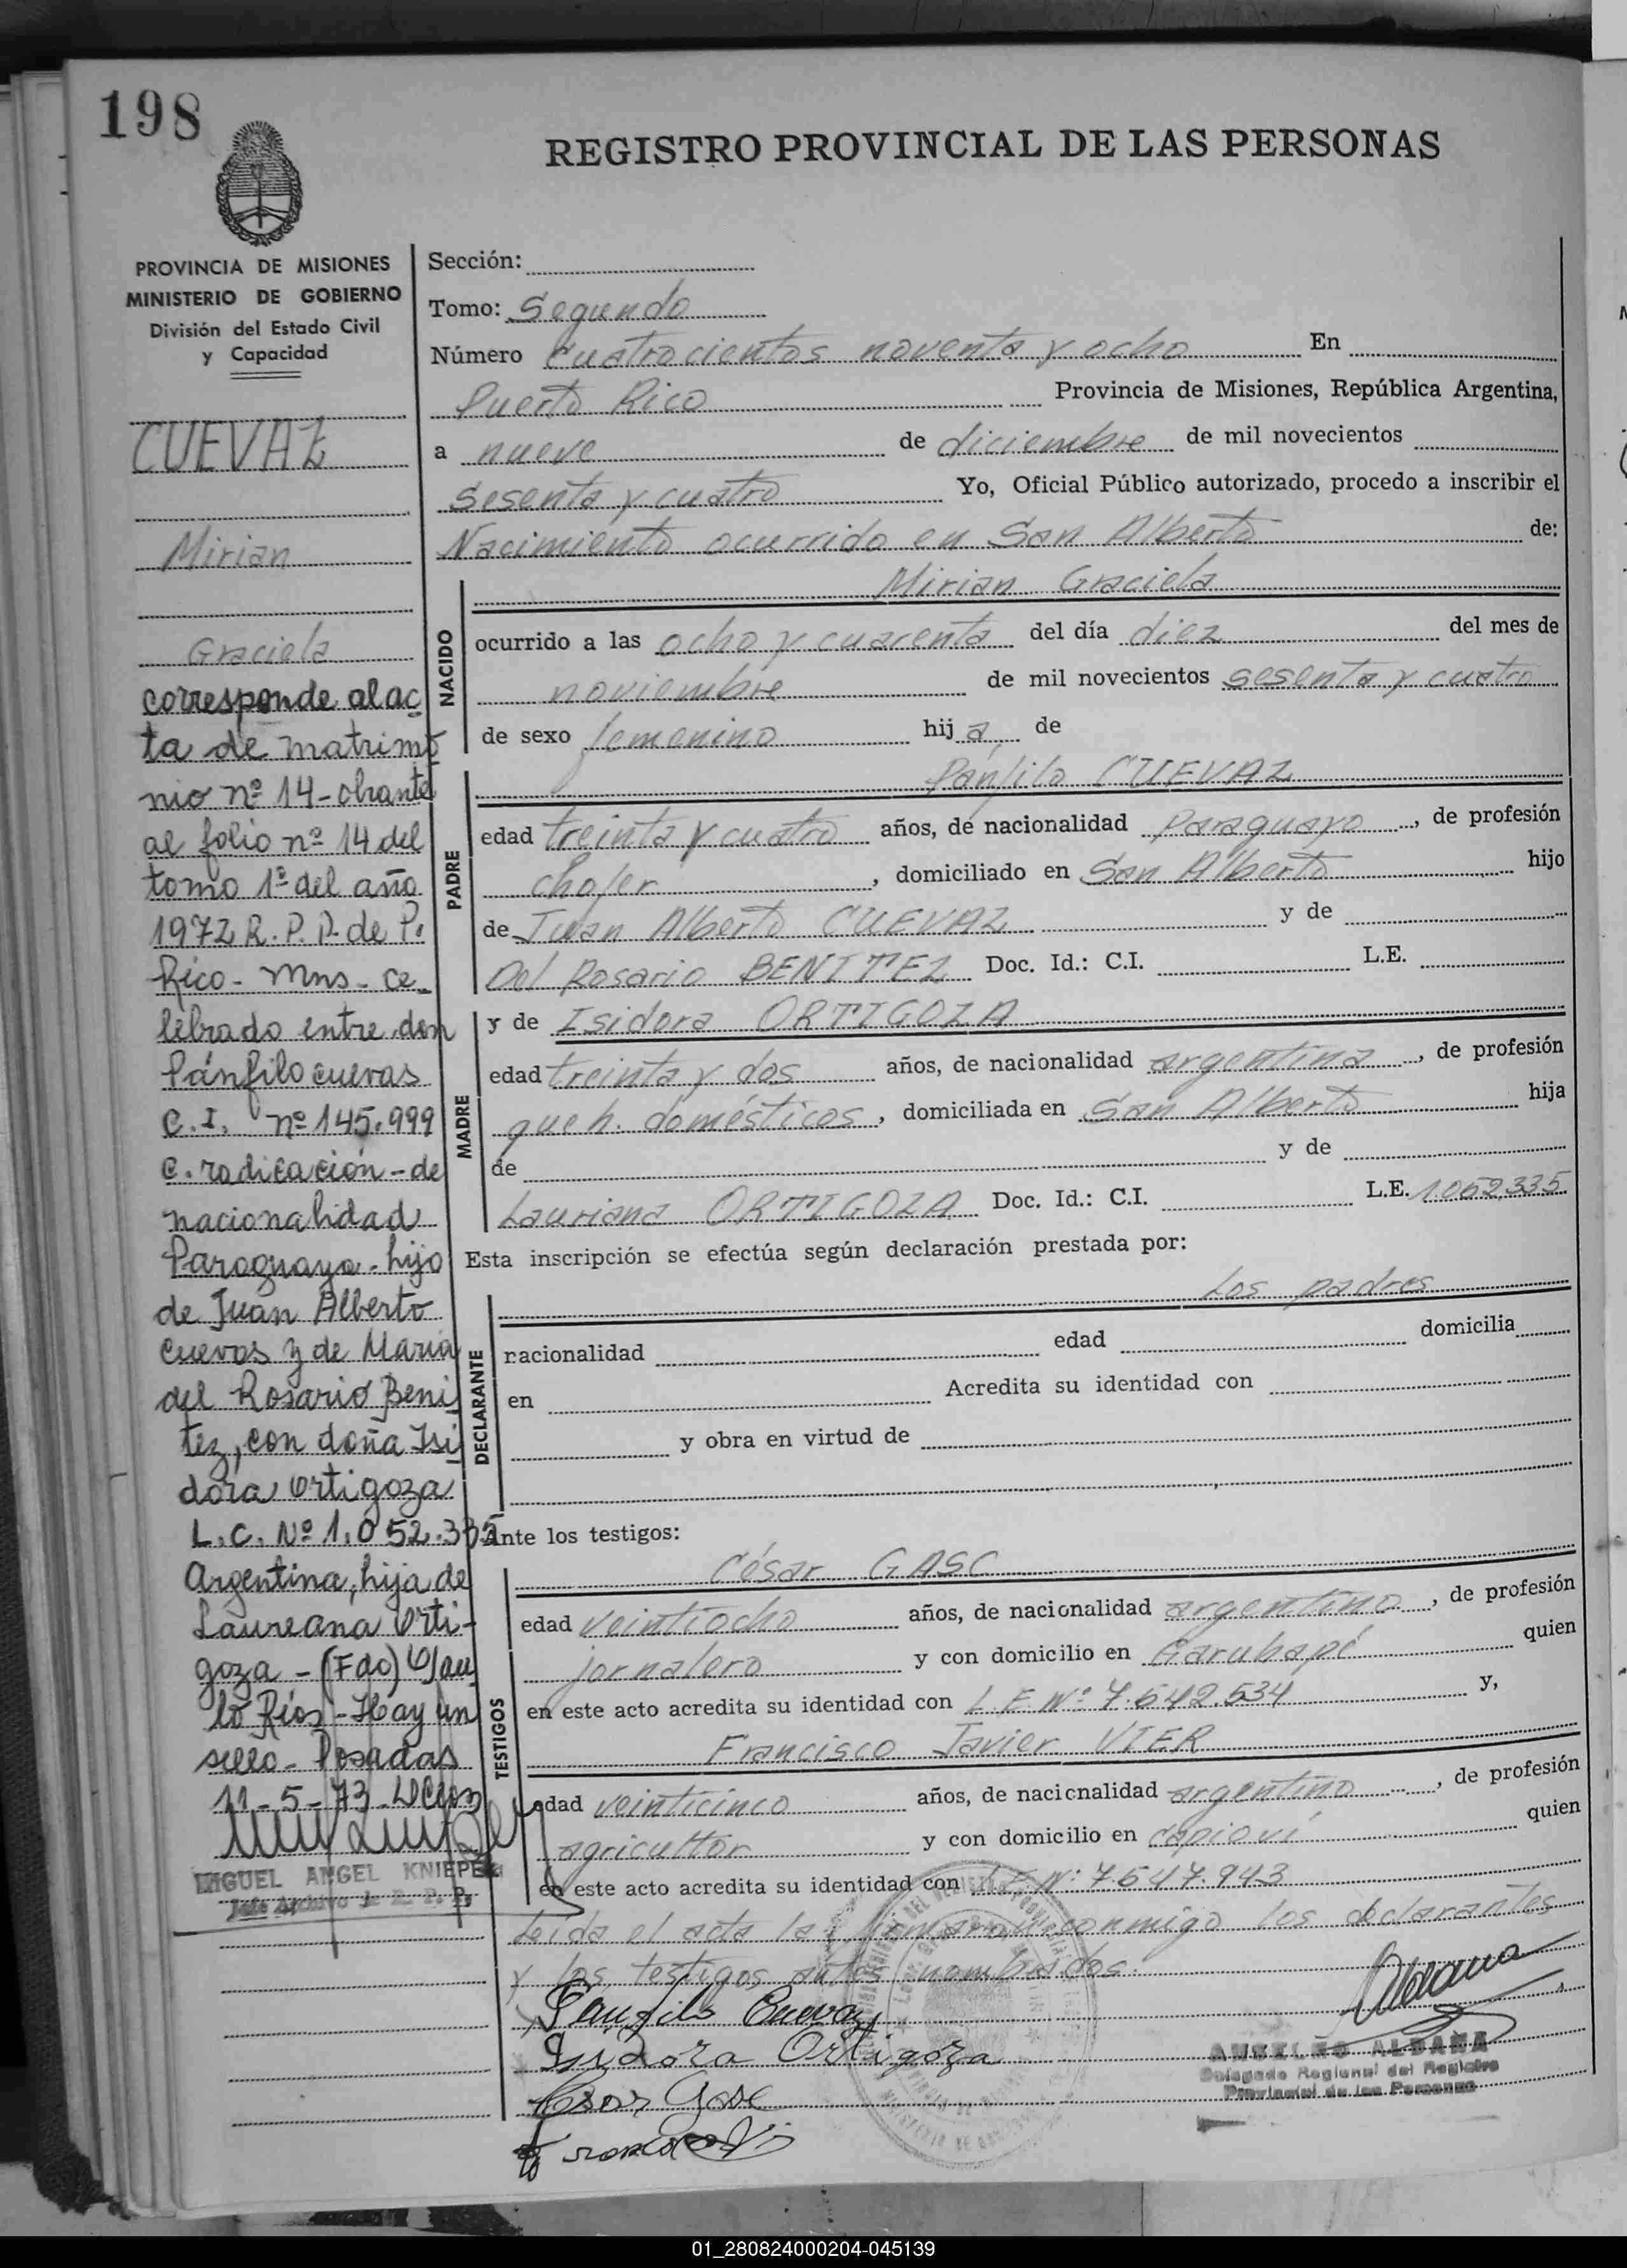 198
REGISTRO PROVINCIAL DE LAS PERSONAS
PROVINCIA DE MISIONES
MINISTERIO DE GOBIERNO
División del Estado Civil
y Capacidad
CUEVAZ
Mirian
Graciela
corresponde al ac
ta de matrimo
nio nº 14 - obrante
al folio nº 14 del
tomo 1º del año
1972 R. P. P. de P.
Rico - Mns - ce
lebrado entre don
Pánfilo cuevas
C.I. nº 145.999
C. radicación - de
nacionalidad
Paraguaya - hijo
de Juan Alberto
Cuevas y de María
del Rosario Beni
tez, con doña Isi
dora Ortigoza
L.C. Nº 1.052.335
Argentina, hija de
Laureana Orti-
goza - (Fdo)
Ríos - Hay un
sello - Posadas
11-5-73
MIGUEL ANGEL KNIEPER
Jefe Archivo R. P. P.
Sección:
Tomo: Segundo
Número Cuatrocientos noventa y ocho En
Puerto Rico Provincia de Misiones, República Argentina,
a nueve de diciembre de mil novecientos
sesenta y cuatro Yo, Oficial Público autorizado, procedo a inscribir el
Nacimiento ocurrido en San Alberto de:
NACIDO
Mirian Graciela
ocurrido a las ocho y cuarenta del día diez del mes de
noviembre de mil novecientos sesenta y cuatro
de sexo femenino hij a de
PADRE
Pánfilo CUEVAZ
edad treinta y cuatro años, de nacionalidad paraguayo, de profesión
chofer, domiciliado en San Alberto hijo
de Juan Alberto CUEVAZ y de
Del Rosario BENITEZ Doc. Id.: C.I. L.E.
MADRE
y de Isidora ORTIGOZA
edad treinta y dos años, de nacionalidad argentina, de profesión
queh. domésticos, domiciliada en San Alberto hija
de y de
Lauriana ORTIGOZA Doc. Id.: C.I. L.E. 1.052.335
Esta inscripción se efectúa según declaración prestada por:
Los padres
DECLARANTE
nacionalidad edad domicilia
en Acredita su identidad con
y obra en virtud de
Ante los testigos:
TESTIGOS
César GASC
edad veintiocho años, de nacionalidad argentino, de profesión
jornalero y con domicilio en Garuhapé quien
en este acto acredita su identidad con L E Nº 7.642.534 y,
Francisco Javier VIER
edad veinticinco años, de nacionalidad argentino, de profesión
agricultor y con domicilio en capioví quien
en este acto acredita su identidad con L E Nº 7.647.943
Leída el acta la firmaron conmigo los declarantes
y los testigos antes nombrados.
Panfilo Cuevaz
Isidora Ortigoza
Cesar Gasc
ANSELMO ALDANA
Delegado Regional del Registro
Provincial de las Personas
01_280824000204-045139